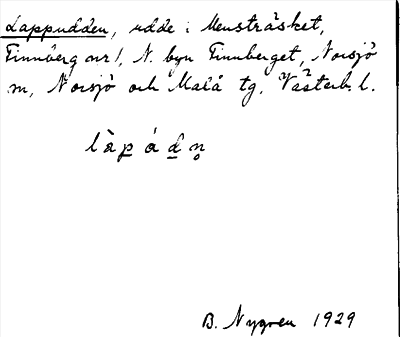 Lappudden, udde i Mensträsket,
Finnberg nr 1, N. byn Finnberget, Norsjö
m, Norsjö och Malå tg, Västerb. l.
làpádn̥
B. Nygren 1929